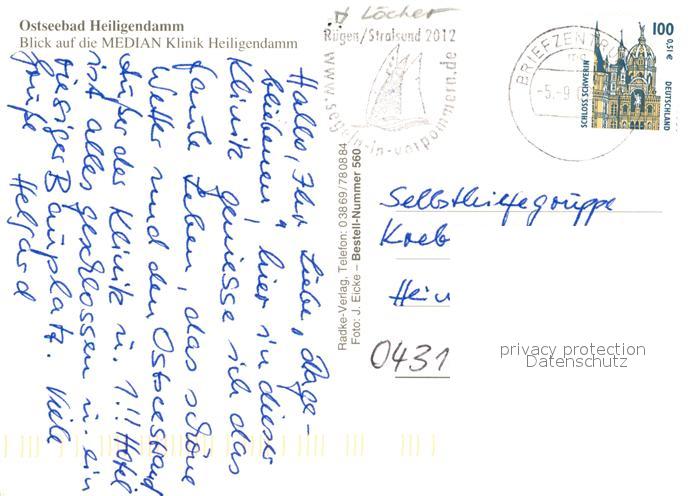 Ostseebad Heiligendamm
Blick auf die MEDIAN Klinik Heiligendamm
Hallo, Ihr Liebe, Dage-
bliebenen, hier in dieser
Klinik geniesse ich das
faule Leben, das schöne
Wetter und den Ostseestrand
Außer der Klinik u. 1!! Hotel
ist alles geschlossen u. ein
riesiger Bauplatz. Viele
Grüße Helgard
Löcher
Rügen/Stralsund 2012
www.segeln-in-vorpommern.de
BRIEFZENTRUM
-5.-9
100
0,51€
SCHLOSS SCHWERIN
DEUTSCHLAND
Radke-Verlag, Telefon: 03869/780884
Foto: J. Eicke – Bestell-Nummer 560
Selbsthilfegruppe
Kreb
Hein
0431
privacy protection
Datenschutz